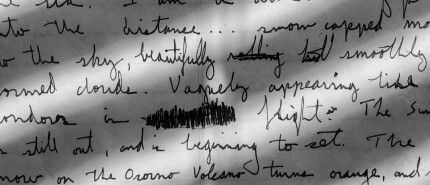 to the distance... snow capped mo
the sky, beautifully smoothly
ormed clouds. Vaguely appearing like
ondors in flight. The Sun
still out, and is beginning to set. The
now on the Osorno Volcano turns orange, and